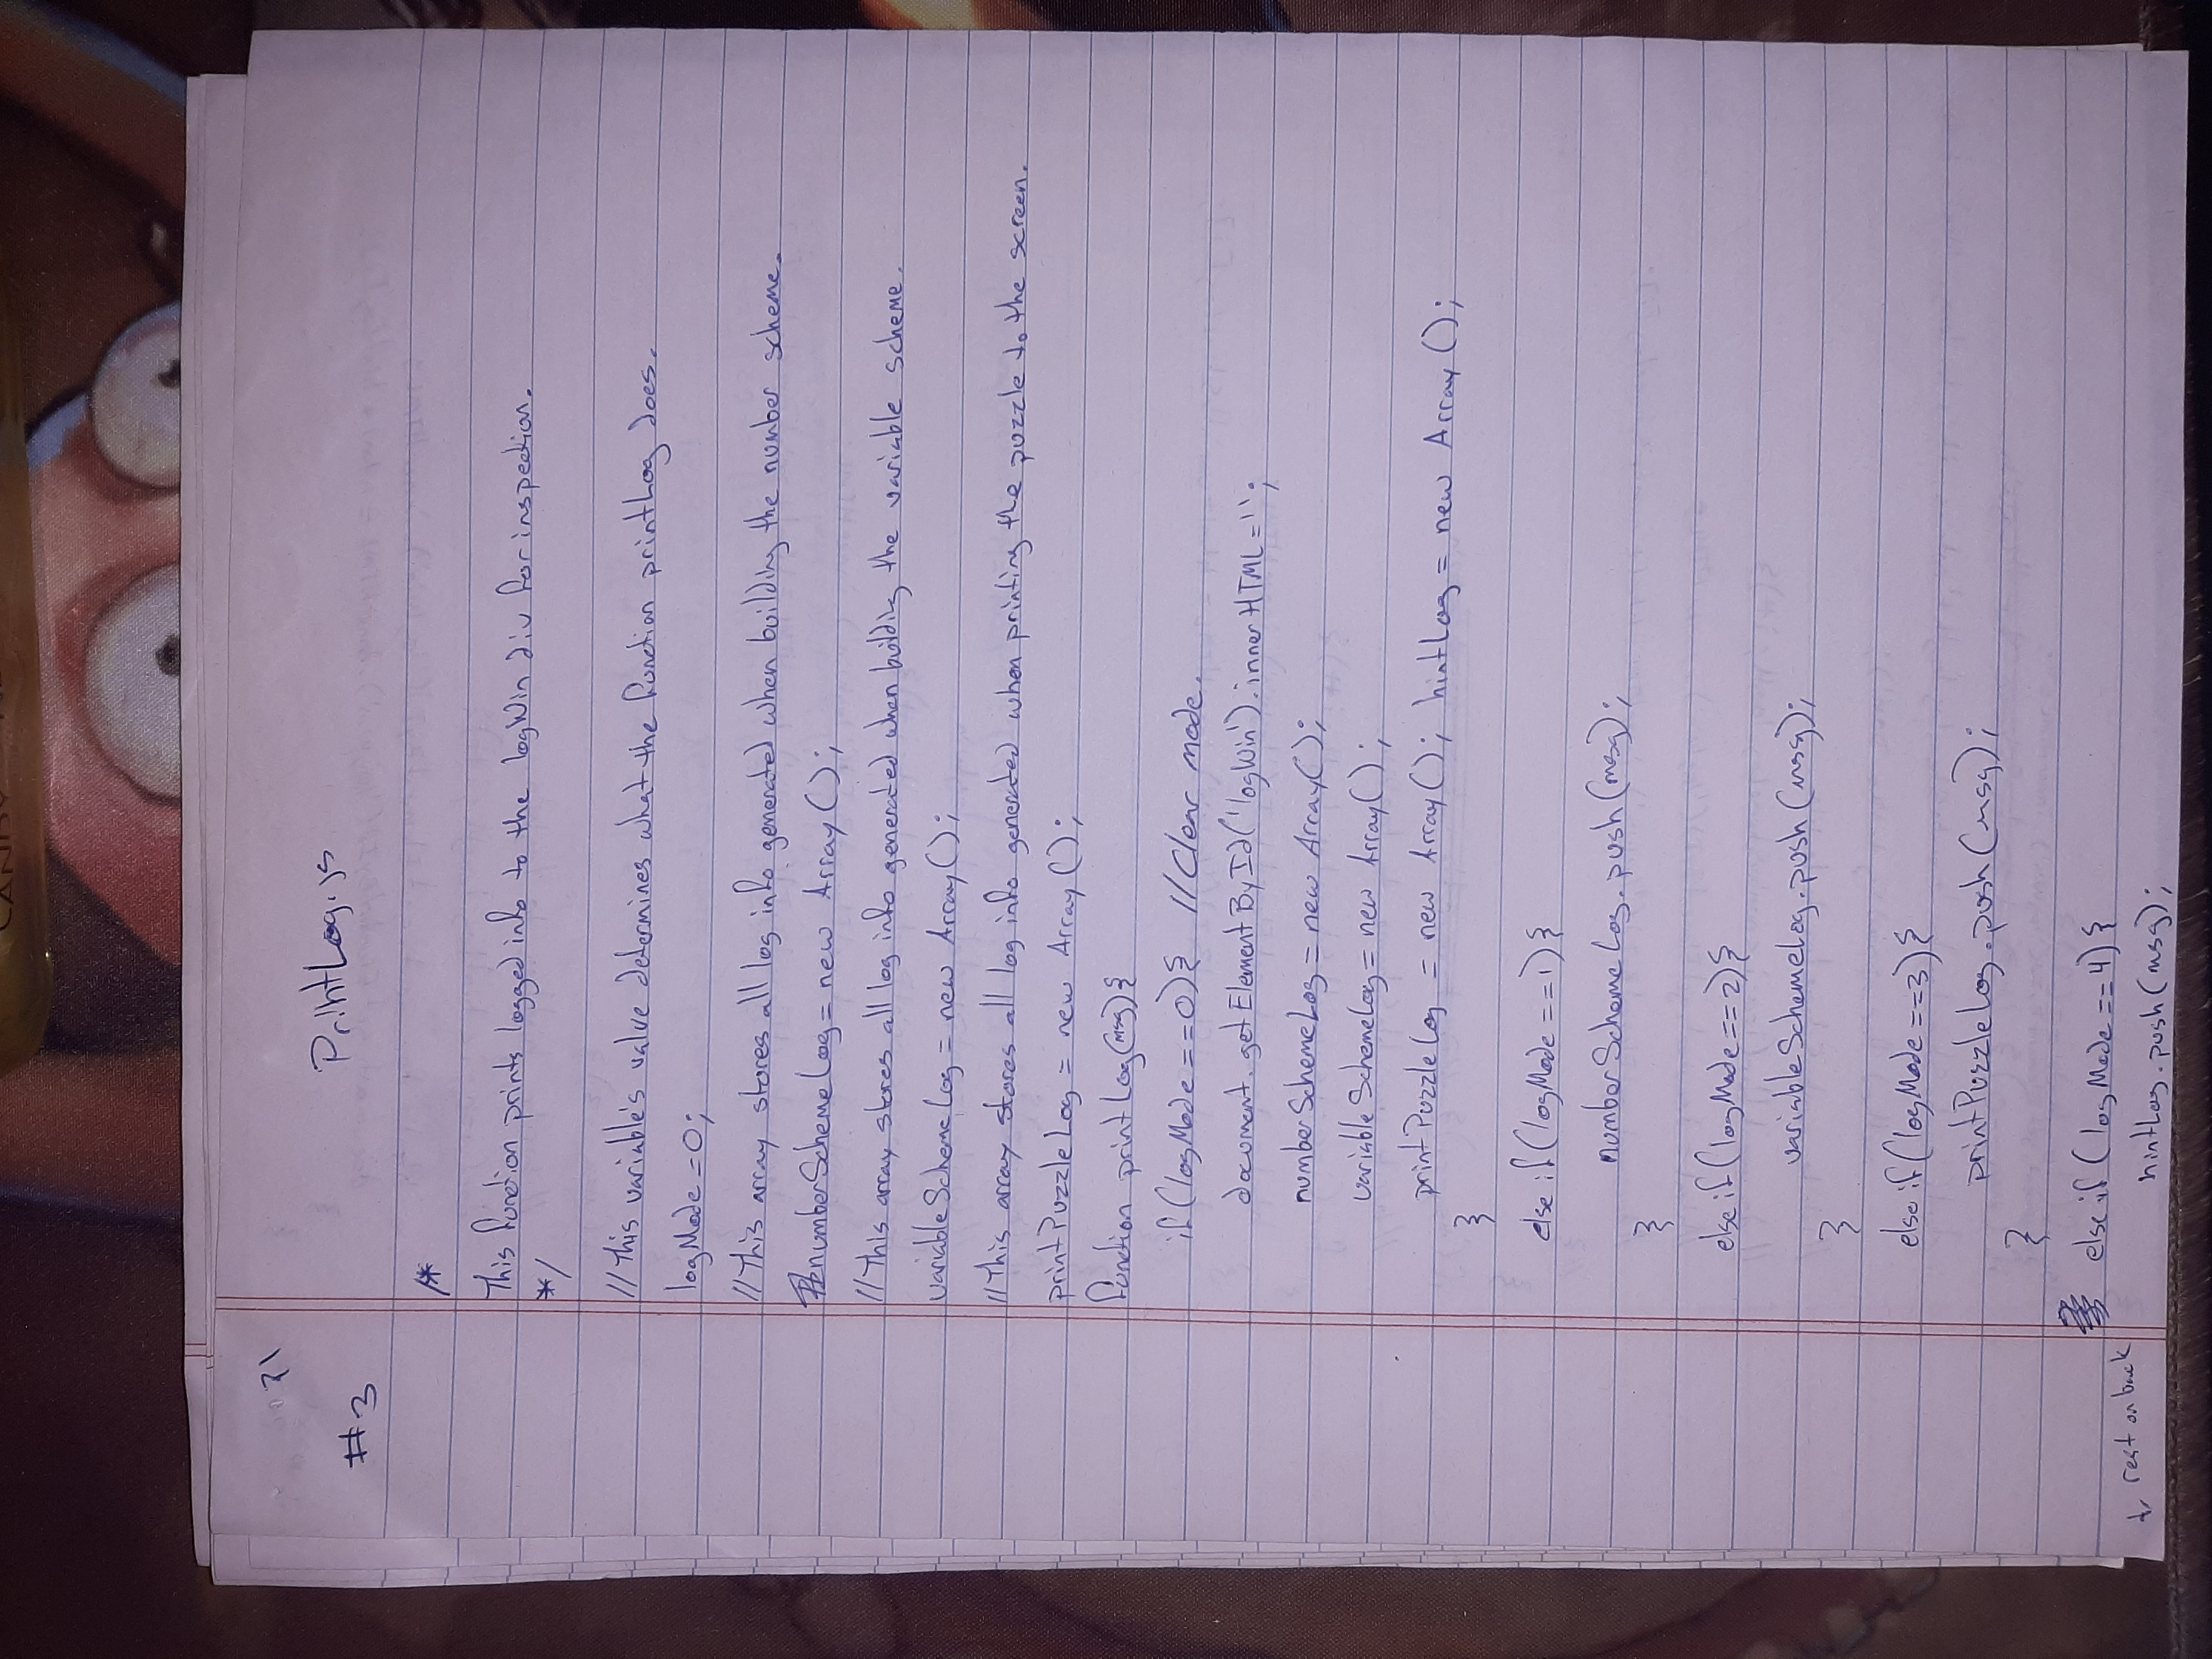 CANDY
71
PrintLog.js
#3
/*
This function prints logged info to the logWin div for inspection.
*/
//This variable's value determines what the function printLog does.
logMode=0;
//This array stores all log info generated when building the number scheme.
numberSchemeLog= new Array();
//This array stores all log info generated when building the variable scheme.
variableSchemeLog = new Array();
//This array stores all log info generated when printing the puzzle to the screen.
printPuzzleLog = new Array();
function printLog(msg){
if(logMode==0){ //Clear mode.
document.getElementById('logWin').innerHTML='';
numberSchemeLog = new Array();
variableSchemeLog = new Array();
printPuzzleLog = new Array(); hintLog = new Array();
}
else if(logMode==1){
numberSchemeLog.push(msg);
}
else if(logMode==2){
variableSchemeLog.push(msg);
}
else if(logMode==3){
printPuzzleLog.push(msg);
}
else if(logMode==4){
rest on back
hintLog.push(msg);